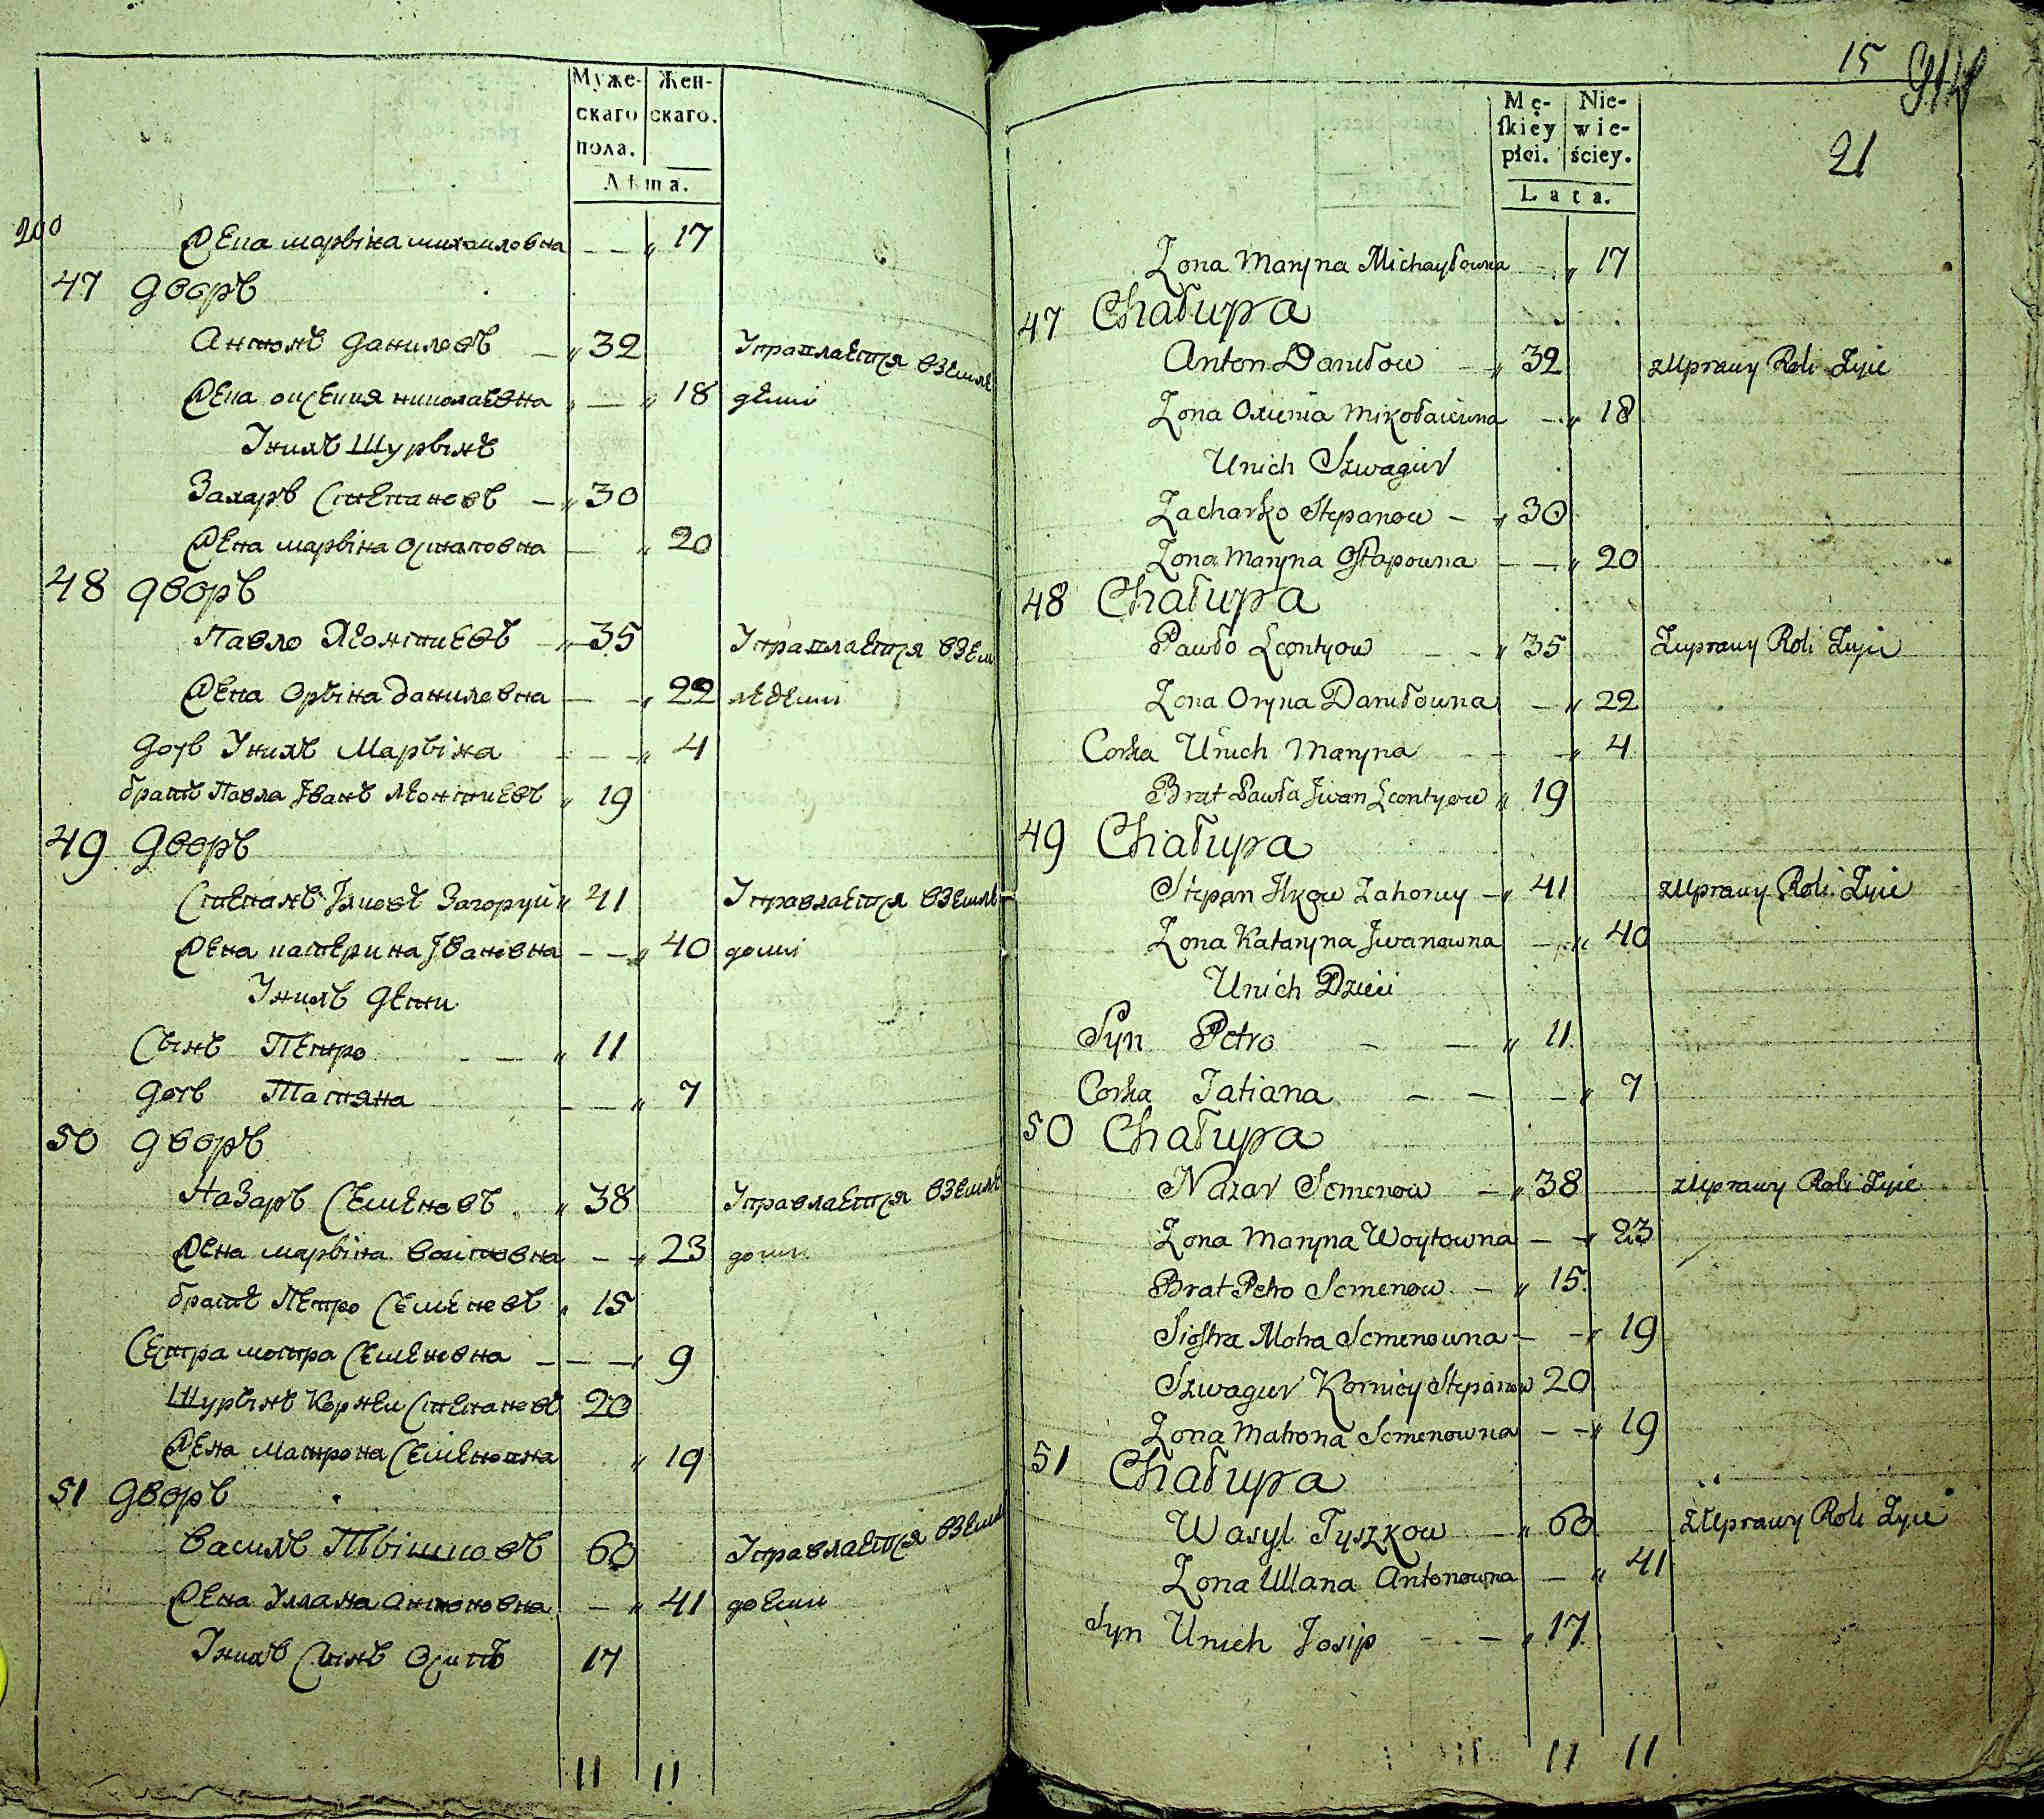 Муже-
скаго
пола.
Жен-
скаго.
Лѣта.
200
Жена марьіна михаиловна — — „ 17
47 Дворъ
Антонъ Даниловъ — „ 32 Управляется вземле
Жена оксения николаевна „ — „ 18 делиі
Унихъ Шурьінъ
Захаръ Степановъ — „ 30
Жена марьіна остаповна — „ 20
48 Дворъ
Павло Леонтиевъ — „ 35 Управляется взем
Жена Орьіна Даниловна — — „ 22
Дочь Унихъ Марьіна — — — „ 4
братъ Павла Іванъ Леонтиевъ „ 19
49 Дворъ
Степанъ Ілковъ Загоруй „ 41 Управляется вземле
Жена катерина Івановна — — „ 40
Унихъ Дети
Сынъ Петро — — „ 11
Дочь Татяна — — „ 7
50 Дворъ
Назаръ Семеновъ „ 38 Управляется вземле
Жена марьіна воитовна — „ 23
братъ Петро Семеновъ „ 15
Сестра мотра Семеновна — — — 9
Шурьінъ Корнеи Степановъ 20
Жена Матрона Семеновна „ 19
51 Дворъ
Василь Тьішковъ 60 Управляется вземл
Жена Уллана антоновна — „ 41
Унихъ Сынъ Осипъ 17
11 11
15
21
Mę-
ſkiey
płci.
Nie-
wie-
ściey.
Lata.
Zona Maryna Michayłowna — „ 17
47 Chałupa
Anton Daniłow — „ 32 zUprawy Roli Zyie
Zona Oxienia Mikołaiewna — „ 18
Unich Szwagier
Zacharko Stepanow — „ 30
Zona Maryna Ostapowna — — „ 20
48 Chałupa
Pawło Leontyow — — „ 35 Zuprawy Roli Zyie
Zona Oryna Daniłowna — „ 22
Corka Unich Maryna — — — „ 4
Brat Pawła Jwan Leontyow „ 19
49 Chałupa
Stepan Ilkow Zahoruy — „ 41 zUprawy Roli Zyie
Zona Kataryna Jwanowna — „ 40
Unich Dzieci
Syn Petro — — „ 11
Corka Tatiana — — — „ 7
50 Chałupa
Nazar Semenow — „ 38 zUprawy Roli Zyie
Zona Maryna Woytowna — — „ 23
Brat Petro Semenow — „ 15
Siostra Motra Semenowna — — „ 19
Szwagier Korniey Stepanow 20
Zona Matrona Semenowna — — „ 19
51 Chałupa
Wasyl Tyszkow — „ 60 zUprawy Roli Zyie
Zona Ullana Antonowna — „ 41
Syn Unich Josip — — „ 17
11 11